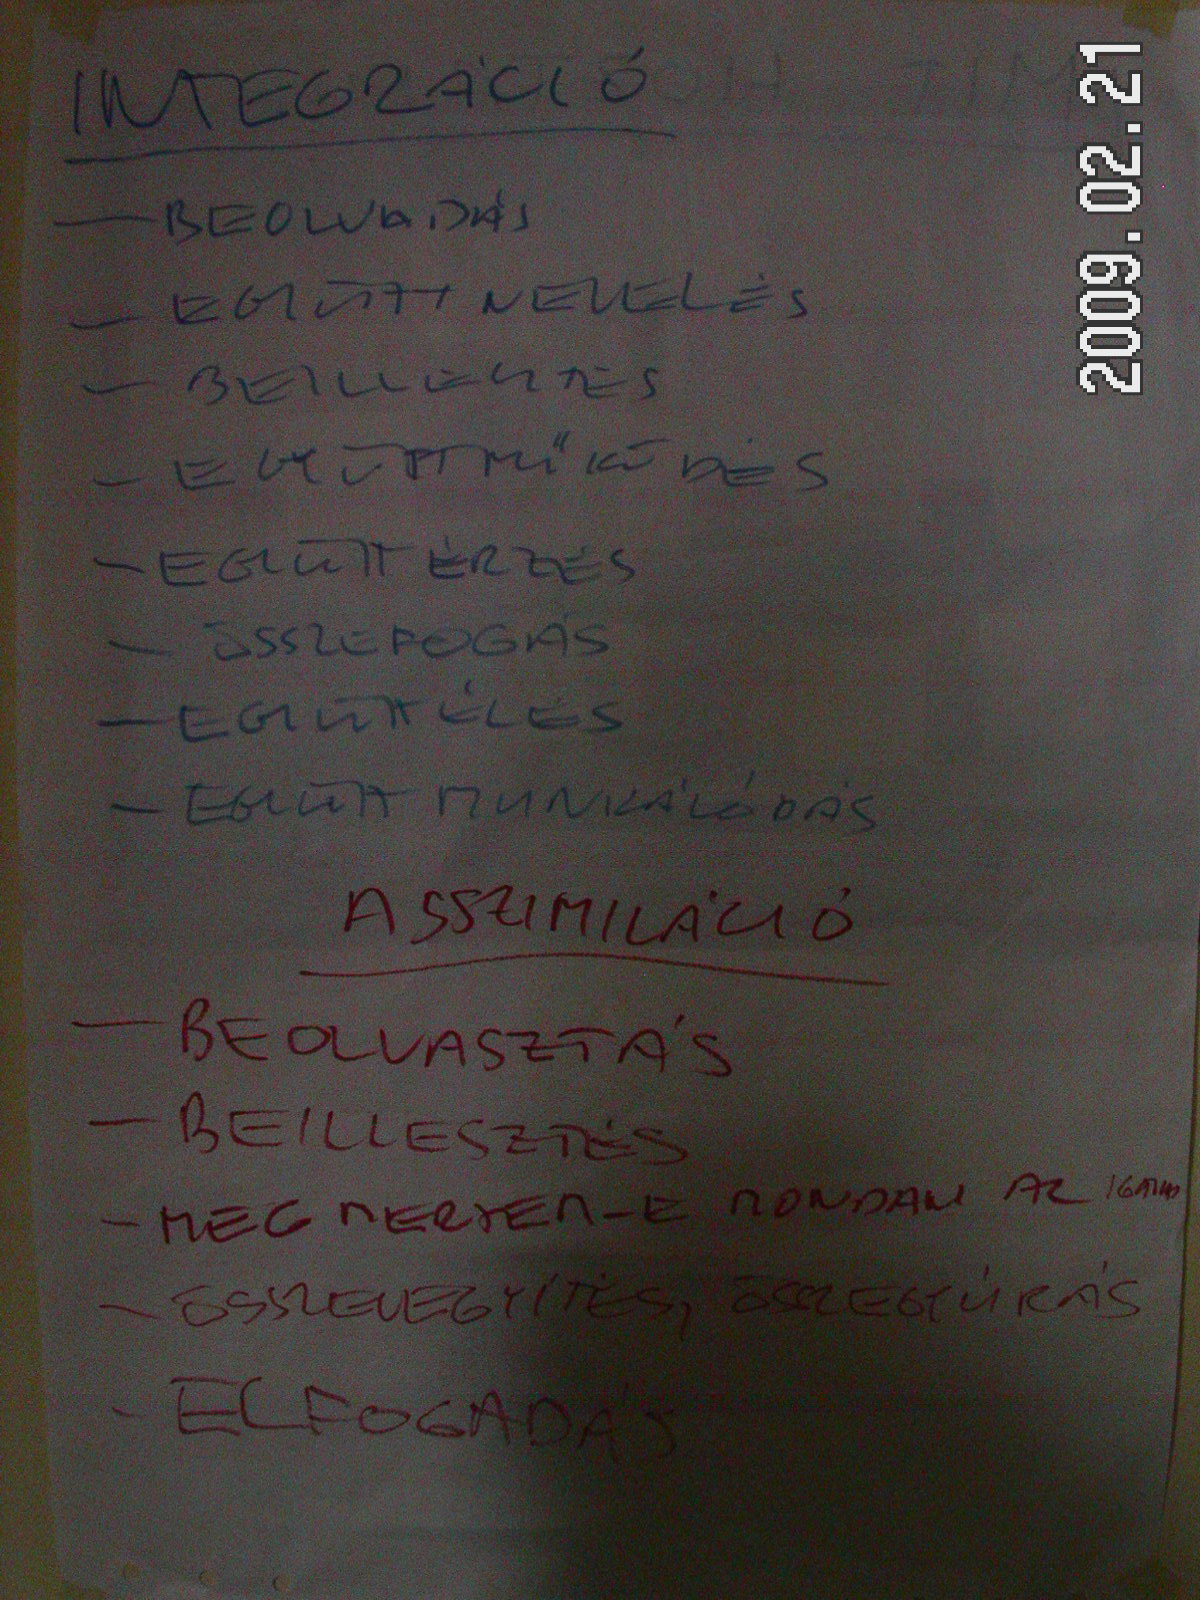 INTEGRÁCIÓ
— BEOLVADÁS
— EGYÜTT NEVELÉS
— BEILLESZTÉS
— EGYÜTTMŰKÖDÉS
— EGYÜTTÉRZÉS
— ÖSSZEFOGÁS
— EGYÜTTÉLÉS
— EGYÜTT MUNKÁLÓDÁS
ASSZIMILÁCIÓ
— BEOLVASZTÁS
— BEILLESZTÉS
— MEG MERJEM-E MONDANI AZ
— ÖSSZEVEGYÍTÉS, ÖSSZEGYÚRÁS
— ELFOGADÁS
2009.02.21